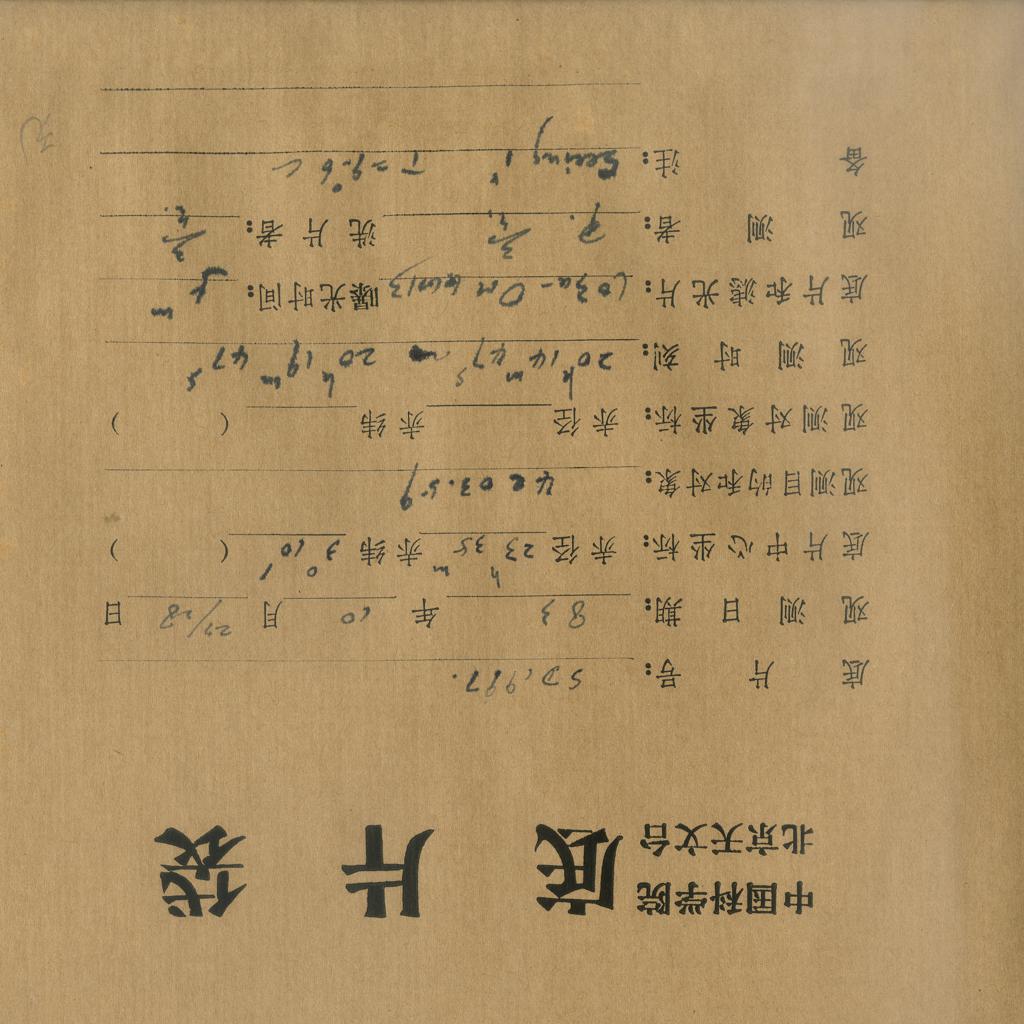 中国科学院
北京天文台
底 片 袋
底 片 号:
观 测 日 期: 83 年 10 月 27/28 日
底片中心坐标: 赤径 23h 35m 赤纬 3° 10′ ( )
观测目的和对象:
观测对象坐标: 赤径 赤纬 ( )
观 测 时 刻: 20h 14m 47s — 20h 19m 47s
底片和滤光片: 103a-O 曝光时间: 5m
观 测 者: 洗片者:
备 注: Seeing 1″ T=9.°6 C